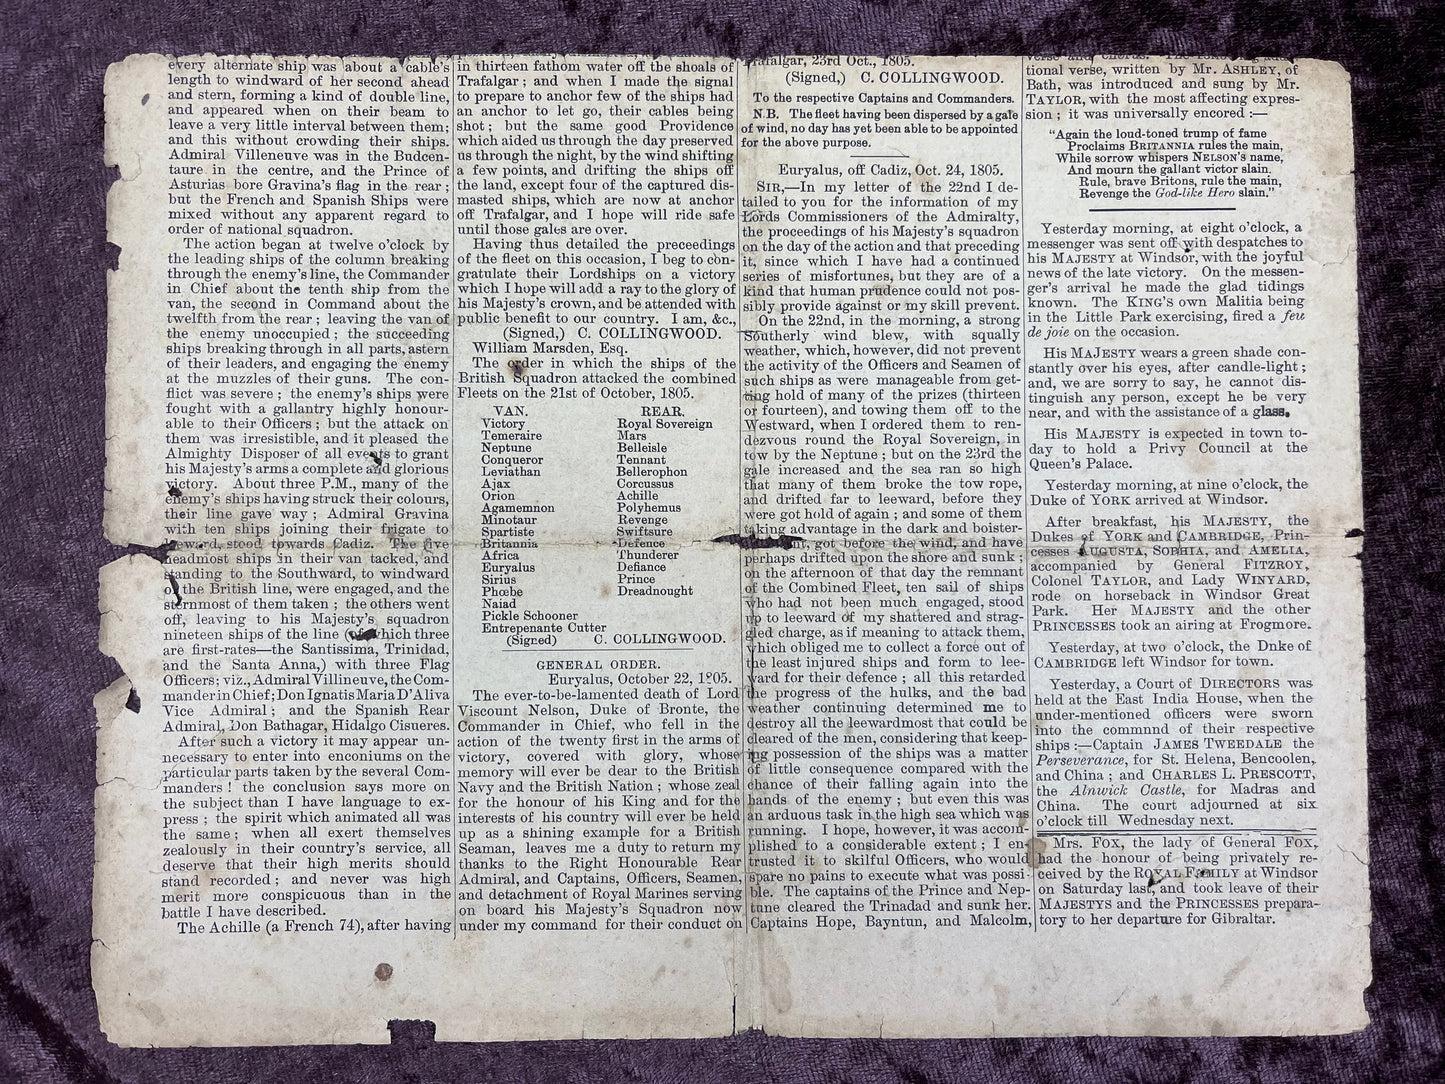 every alternate ship was about a cable's
length to windward of her second ahead
and stern, forming a kind of double line,
and appeared when on their beam to
leave a very little interval between them;
and this without crowding their ships.
Admiral Villeneuve was in the Budcen-
taure in the centre, and the Prince of
Asturias bore Gravina's flag in the rear;
but the French and Spanish Ships were
mixed without any apparent regard to
order of national squadron.
The action began at twelve o'clock by
the leading ships of the column breaking
through the enemy's line, the Commander
in Chief about the tenth ship from the
van, the second in Command about the
twelfth from the rear; leaving the van of
the enemy unoccupied; the succeeding
ships breaking through in all parts, astern
of their leaders, and engaging the enemy
at the muzzles of their guns. The con-
flict was severe; the enemy's ships were
fought with a gallantry highly honour-
able to their Officers; but the attack on
them was irresistible, and it pleased the
Almighty Disposer of all events to grant
his Majesty's arms a complete and glorious
victory. About three P.M., many of the
enemy's ships having struck their colours,
their line gave way; Admiral Gravina
with ten ships joining their frigate to
leeward, stood towards Cadiz. The five
headmost ships in their van tacked, and
standing to the Southward, to windward
of the British line, were engaged, and the
sternmost of them taken; the others went
off, leaving to his Majesty's squadron
nineteen ships of the line (of which three
are first-rates—the Santissima, Trinidad,
and the Santa Anna,) with three Flag
Officers; viz., Admiral Villineuve, the Com-
mander in Chief; Don Ignatis Maria D'Aliva
Vice Admiral; and the Spanish Rear
Admiral, Don Bathagar, Hidalgo Cisueres.
After such a victory it may appear un-
necessary to enter into enconiums on the
particular parts taken by the several Com-
manders! the conclusion says more on
the subject than I have language to ex-
press; the spirit which animated all was
the same; when all exert themselves
zealously in their country's service, all
deserve that their high merits should
stand recorded; and never was high
merit more conspicuous than in the
battle I have described.
The Achille (a French 74), after having
in thirteen fathom water off the shoals of
Trafalgar; and when I made the signal
to prepare to anchor few of the ships had
an anchor to let go, their cables being
shot; but the same good Providence
which aided us through the day preserved
us through the night, by the wind shifting
a few points, and drifting the ships off
the land, except four of the captured dis-
masted ships, which are now at anchor
off Trafalgar, and I hope will ride safe
until those gales are over.
Having thus detailed the preceedings
of the fleet on this occasion, I beg to con-
gratulate their Lordships on a victory
which I hope will add a ray to the glory of
his Majesty's crown, and be attended with
public benefit to our country. I am, &c.,
(Signed,) C. COLLINGWOOD.
William Marsden, Esq.
The order in which the ships of the
British Squadron attacked the combined
Fleets on the 21st of October, 1805.
VAN. REAR.
Victory Royal Sovereign
Temeraire Mars
Neptune Belleisle
Conqueror Tennant
Leviathan Bellerophon
Ajax Corcussus
Orion Achille
Agamemnon Polyhemus
Minotaur Revenge
Spartiste Swiftsure
Britannia Defence
Africa Thunderer
Euryalus Defiance
Sirius Prince
Phœbe Dreadnought
Naiad
Pickle Schooner
Entrepenante Cutter
(Signed) C. COLLINGWOOD.
GENERAL ORDER.
Euryalus, October 22, 1805.
The ever-to-be-lamented death of Lord
Viscount Nelson, Duke of Bronte, the
Commander in Chief, who fell in the
action of the twenty first in the arms of
victory, covered with glory, whose
memory will ever be dear to the British
Navy and the British Nation; whose zeal
for the honour of his King and for the
interests of his country will ever be held
up as a shining example for a British
Seaman, leaves me a duty to return my
thanks to the Right Honourable Rear
Admiral, and Captains, Officers, Seamen,
and detachment of Royal Marines serving
on board his Majesty's Squadron now
under my command for their conduct on
Trafalgar, 23rd Oct., 1805.
(Signed,) C. COLLINGWOOD.
To the respective Captains and Commanders.
N.B. The fleet having been dispersed by a gale
of wind, no day has yet been able to be appointed
for the above purpose.
Euryalus, off Cadiz, Oct. 24, 1805.
SIR,—In my letter of the 22nd I de-
tailed to you for the information of my
Lords Commissioners of the Admiralty,
the proceedings of his Majesty's squadron
on the day of the action and that preceding
it, since which I have had a continued
series of misfortunes, but they are of a
kind that human prudence could not pos-
sibly provide against or my skill prevent.
On the 22nd, in the morning, a strong
Southerly wind blew, with squally
weather, which, however, did not prevent
the activity of the Officers and Seamen of
such ships as were manageable from get-
ting hold of many of the prizes (thirteen
or fourteen), and towing them off to the
Westward, when I ordered them to ren-
dezvous round the Royal Sovereign, in
tow by the Neptune; but on the 23rd the
gale increased and the sea ran so high
that many of them broke the tow rope,
and drifted far to leeward, before they
were got hold of again; and some of them
taking advantage in the dark and boister-
got before the wind, and have
perhaps drifted upon the shore and sunk;
on the afternoon of that day the remnant
of the Combined Fleet, ten sail of ships
who had not been much engaged, stood
up to leeward of my shattered and strag-
gled charge, as if meaning to attack them,
which obliged me to collect a force out of
the least injured ships and form to lee-
ward for their defence; all this retarded
the progress of the hulks, and the bad
weather continuing determined me to
destroy all the leewardmost that could be
cleared of the men, considering that keep-
ing possession of the ships was a matter
of little consequence compared with the
chance of their falling again into the
hands of the enemy; but even this was
an arduous task in the high sea which was
running. I hope, however, it was accom-
plished to a considerable extent; I en-
trusted it to skilful Officers, who would
spare no pains to execute what was possi-
ble. The captains of the Prince and Nep-
tune cleared the Trinadad and sunk her.
Captains Hope, Bayntun, and Malcolm,
verse and chorus. The following addi-
tional verse, written by Mr. ASHLEY, of
Bath, was introduced and sung by Mr.
TAYLOR, with the most affecting expres-
sion; it was universally encored:—
"Again the loud-toned trump of fame
Proclaims BRITANNIA rules the main,
While sorrow whispers NELSON's name,
And mourn the gallant victor slain.
Rule, brave Britons, rule the main,
Revenge the God-like Hero slain."
Yesterday morning, at eight o'clock, a
messenger was sent off with despatches to
his MAJESTY at Windsor, with the joyful
news of the late victory. On the messen-
ger's arrival he made the glad tidings
known. The KING's own Malitia being
in the Little Park exercising, fired a feu
de joie on the occasion.
His MAJESTY wears a green shade con-
stantly over his eyes, after candle-light;
and, we are sorry to say, he cannot dis-
tinguish any person, except he be very
near, and with the assistance of a glass.
His MAJESTY is expected in town to-
day to hold a Privy Council at the
Queen's Palace.
Yesterday morning, at nine o'clock, the
Duke of YORK arrived at Windsor.
After breakfast, his MAJESTY, the
Dukes of YORK and CAMBRIDGE, Prin-
cesses AUGUSTA, SOPHIA, and AMELIA,
accompanied by General FITZROY,
Colonel TAYLOR, and Lady WINYARD,
rode on horseback in Windsor Great
Park. Her MAJESTY and the other
PRINCESSES took an airing at Frogmore.
Yesterday, at two o'clock, the Dnke of
CAMBRIDGE left Windsor for town.
Yesterday, a Court of DIRECTORS was
held at the East India House, when the
under-mentioned officers were sworn
into the commnnd of their respective
ships:—Captain JAMES TWEEDALE the
Perseverance, for St. Helena, Bencoolen,
and China; and CHARLES L. PRESCOTT,
the Alnwick Castle, for Madras and
China. The court adjourned at six
o'clock till Wednesday next.
Mrs. FOX, the lady of General FOX,
had the honour of being privately re-
ceived by the ROYAL FAMILY at Windsor
on Saturday last, and took leave of their
MAJESTYS and the PRINCESSES prepara-
tory to her departure for Gibraltar.